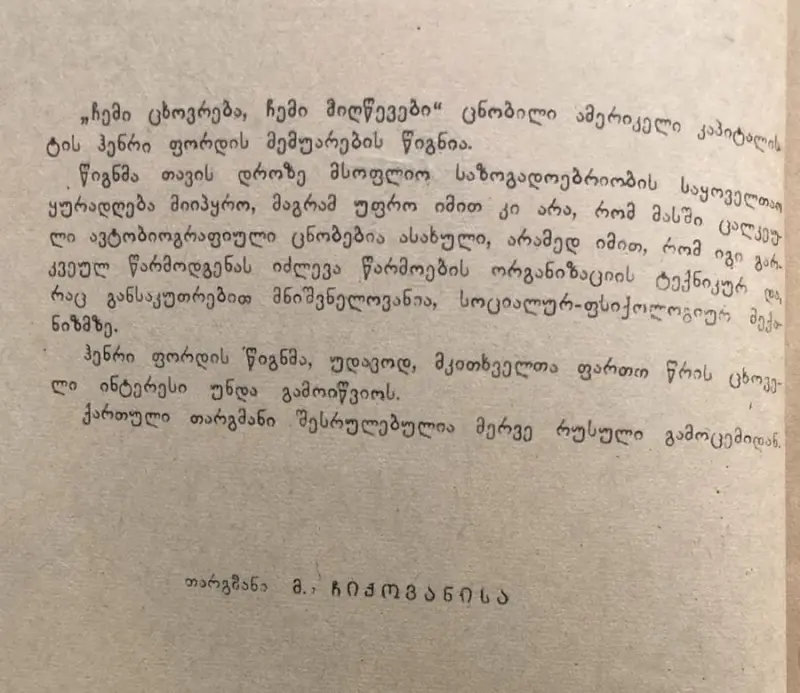 „ჩემი ცხოვრება, ჩემი მიღწევები“ ცნობილი ამერიკელი კაპიტალის
ტის ჰენრი ფორდის მემუარების წიგნია.
წიგნმა თავის დროზე მსოფლიო საზოგადოებრიობის საყოველთაო
ყურადღება მიიპყრო, მაგრამ უფრო იმით კი არა, რომ მასში ცალკეუ-
ლი ავტობიოგრაფიული ცნობებია ასახული, არამედ იმით, რომ იგი გარ-
კვეულ წარმოდგენას იძლევა წარმოების ორგანიზაციის ტექნიკურ და,
რაც განსაკუთრებით მნიშვნელოვანია, სოციალურ-ფსიქოლოგიურ მექა-
ნიზმზე.
ჰენრი ფორდის წიგნმა, უდავოდ, მკითხველთა ფართო წრის ცხოვე-
ლი ინტერესი უნდა გამოიწვიოს.
ქართული თარგმანი შესრულებულია მერვე რუსული გამოცემიდან.
თარგმანი მ. ჩიქოვანისა